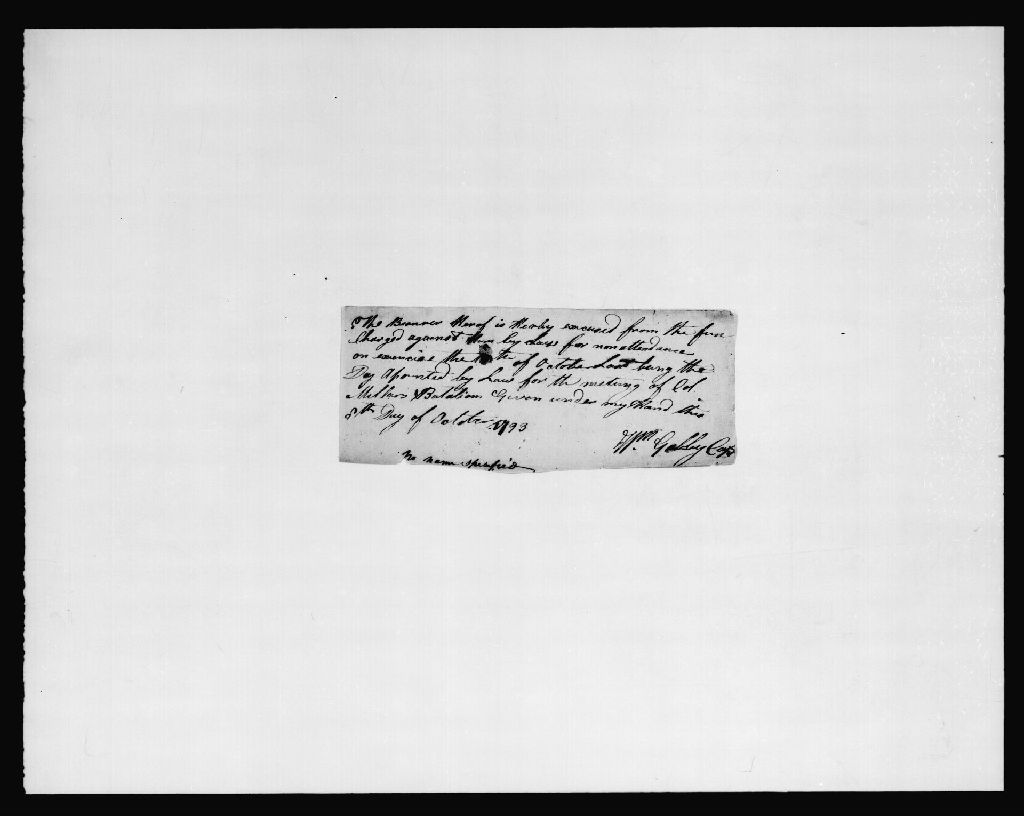 The Bearer Hereof is Hereby excused from the fine
Charged against him by Law for nonattendance
on exercise the of October Last being the
Day Apointed by Law for the meeting of Col
Mellers Batalion Given under my Hand this
8th Day of October 1793
Wm. Galley Capt
No name specified